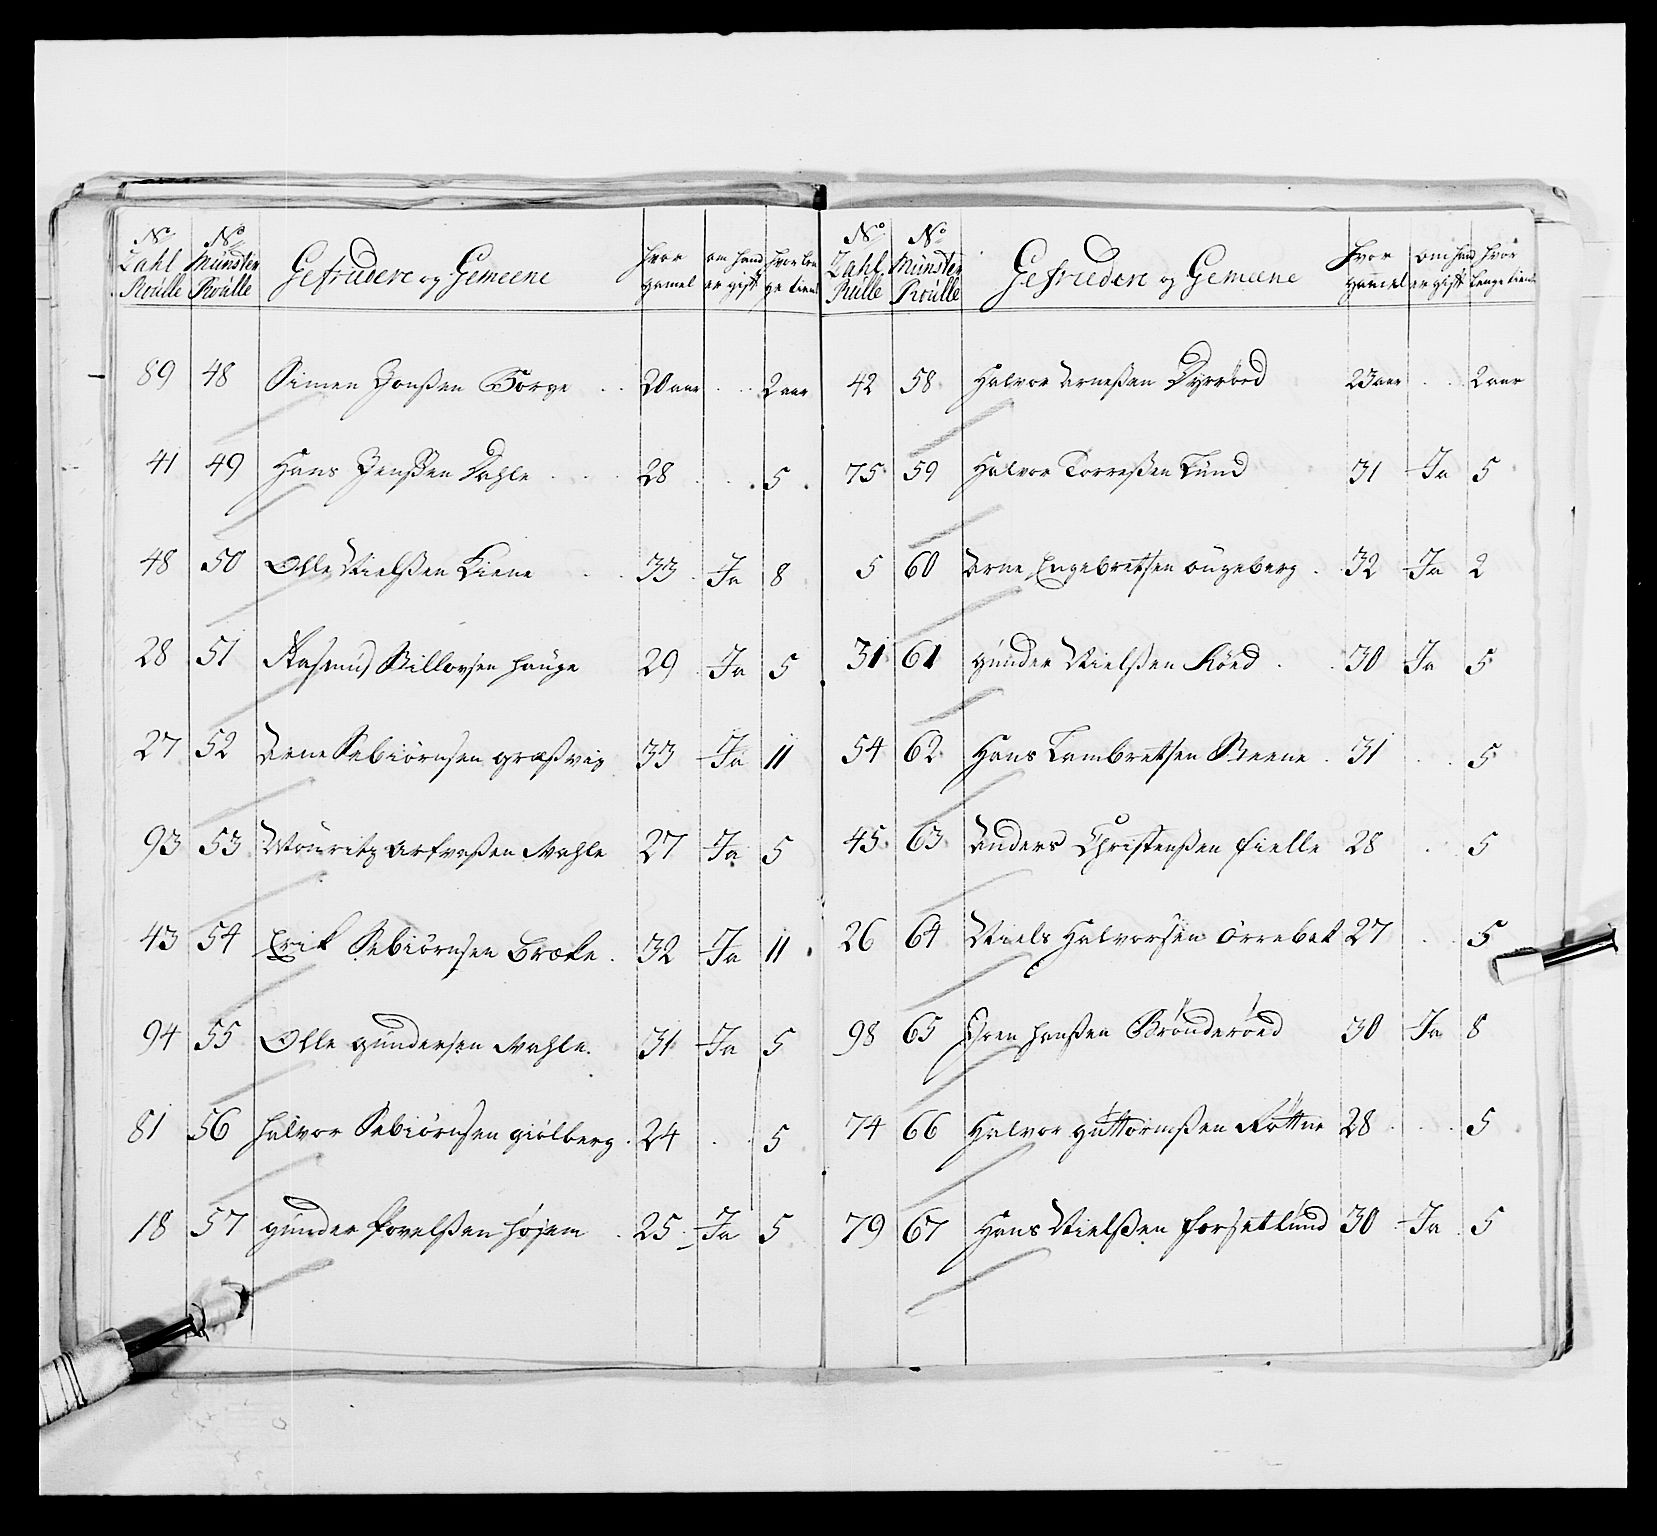 No Zahl Roulle No Münster Roulle Gefriedere og Gemeene hvor gamel om hand er gift hvor længe tient
89 48 Simen Jonsßen Borge 20 aar 2 aar
41 49 Hans Jensßen Dahle 28 5
48 50 Olle Nielsßen Liene 33 Ja 8
28 51 Rasmus Billovsen Hauge 29 Ja 5
27 52 Arne Sebiörnsen græsvig 33 Ja 11
93 53 Mouritz Arfvesßen Wahle 27 Ja 5
43 54 Erik Sebiörnsen Bræke 32 Ja 11
94 55 Olle gundersen Wahle 31 Ja 5
81 56 halvor Sebiörnsen giölberg 24 5
18 57 gunder Povelsßen Höjem 25 Ja 5
No Zahl Rulle No Münster Roulle Gefriedere og Gemeene hvor gamel om hand er gift hvor længe tient
42 58 Halvor Arnesßen Dyrröd 23 aar 2 aar
75 59 Halvor Torresßen Lund 31 Ja 5
5 60 Arne Engebretsen ougeberg 32 Ja 2
31 61 gunder Nielsßen Röed 30 Ja 5
54 62 Hans Lambretsen Steene 31 5
45 63 Anders Christensßen fielle 28 5
26 64 Niels Halvorsen Örrebek 27 5
98 65 Sören Hansßen Brönderöed 30 Ja 8
74 66 Halvor guttormsßen Röttne 28 5
79 67 Hans Nielsßen forsetlund 30 Ja 5